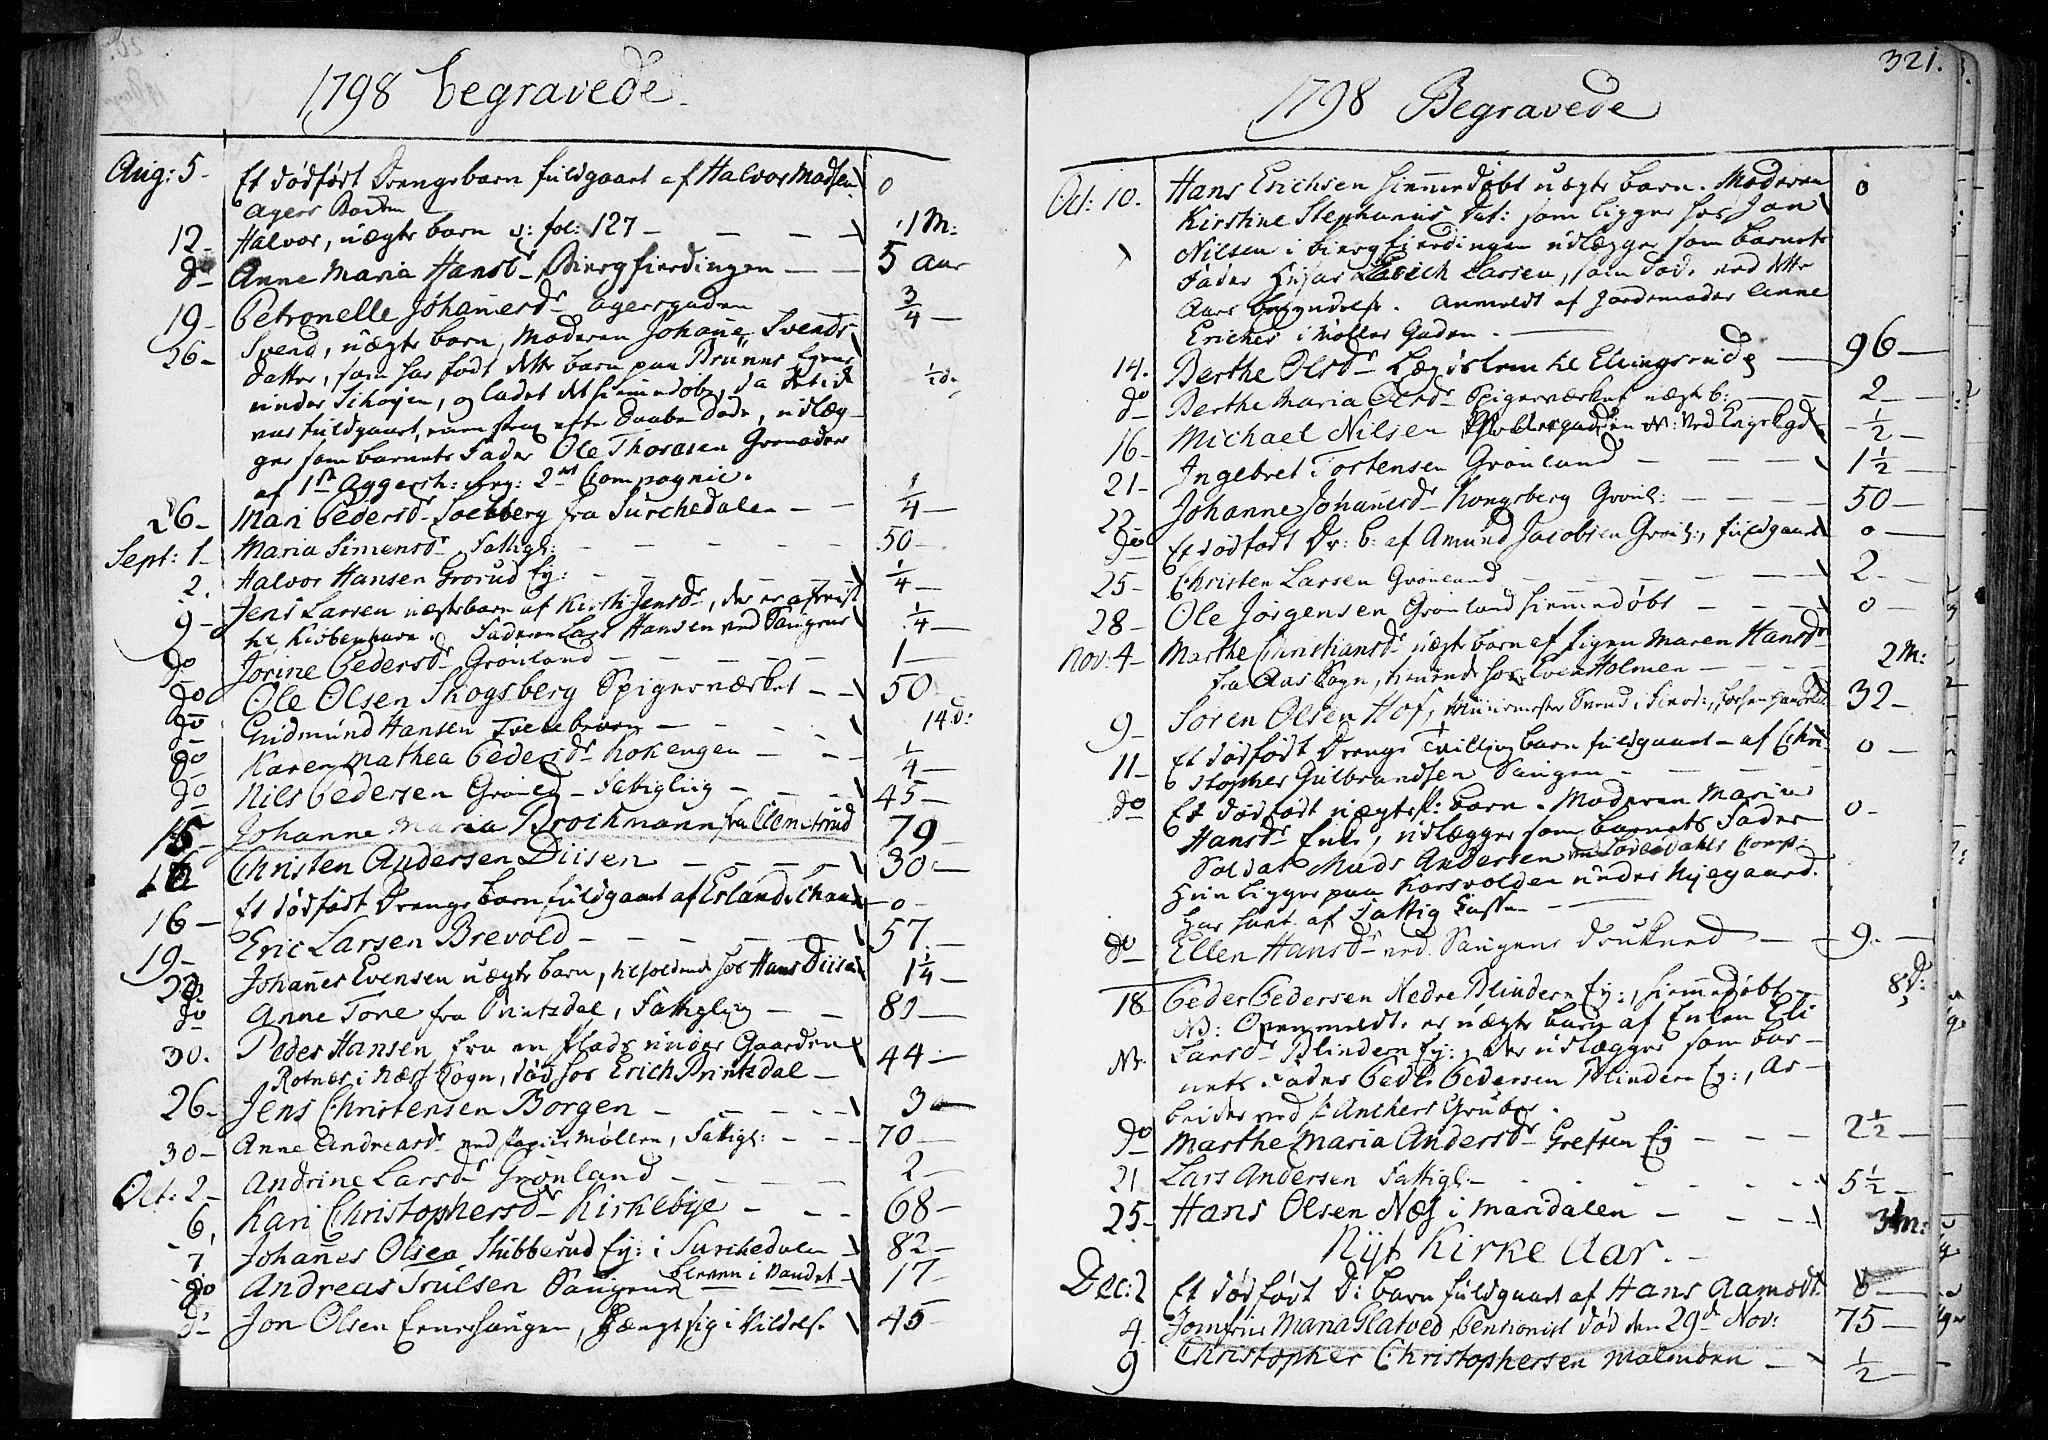 1798 begravede.
Aug: 5 - Et dödfödt Drengebarn fuldgaaet af Halvor Madsen 0
Agers Backen
12 - Halvor, uægte barn v: fol: 127 - - - - 11 M:
do Anne Maria Hansdr Biergfierdingen - - 5 aar
19 - Petronelle Johannesdr agersgaden 3/4 -
26 - Svend, uægte barn, Moderen Johanne Svends-
datter, som har född dette barn paa Bruuns
under, og ladet det hiemmedøbe, da det ei 1/2 d.
var fuldgaaet, men strax efter Daaben døde, udlæg-
ger som barnets Fader Ole Thorasen Grenadeer
af 1ste Aggersh: 2det Compagnie.
26 - Mari Pedersdr Solberg fra Surchedalen - - 1/4 -
Sept: 1 - Maria Simensdr Fattigl: - - - - 50 -
2. Halvor Hansen Grorud Ey: - - - 1/4 -
9 - Jens Larsen uægte barn af Kirsti Jensdr, der er afreist
til Kiöbenhavn. Faderen Lars Hansen ved Saugene 1/4 -
do Jorine Pedersdr Grönland - - - - 1 -
do Ole Olsen Skogsberg Spigerverket - - 50
do Gudmund Hansen - - - 14 d:
do Karen Mathea Pedersdr Kokengen - - - 1/4 -
do Nils Pedersen Grönld - Fattiglig - - - 45 -
15 Johanne Maria Brockmann fra Clemetsrud 79 -
16 Christen Andersen Diisen - - - - 30 -
16 - Et dödfödt Drengebarn fuldgaaet af Erland - 0 -
19 - Eric Larsen Brevold - - - - 57 -
Johannes Evensen uægte barn, tilholdende hos Hans Diisen 1 1/4 -
do Anne Tone fra Printsdal, Fattiglig - - 80 -
30. Peder Hansen fra en Plads under Gaarden 44 -
Rotnes i Næss Sogn, död hos Erich Printsdal -
26 - Jens Christensen Borgen - - - - 3 -
30 - Anne Andreasdr ved Papiir Møllen, Fattigl: - - - 70 -
Oct: 2 - Andrine Larsdr Grönland - - - - 2 -
6, Kari Christophersdr Kirkebye - - - 68 -
7 Johannes Olsen Stubberud Ey: i Surchedalen - 82 -
do Andreas Trulsen Saugene bleven i Vandet - 17 -
do Jon Olsen Ennerhaugen, hængt sig i Vildelse 45 -
321.
1798 Begravede
Oct: 10. Hans Erichsen hiemmedøbt uægte barn. Moderen 0
Kirstine Stephanus dat: som ligger hos Jan
Nilsen i biergfierdingen udlægger som barnets
Fader Erich Larsen, som døde ved dette
Aars begyndelse. Anmeldt af Jordemoder Anne
Eriches i Møller Gaden. -
14. Berthe Olsdr Lægdslem til Ellingsrude - 96 -
do Berthe Maria Olsdr Spigerværket uægte b: - - 2 -
16 - Michael Nilsen - 1/2 -
21 - Ingebret Tostensen Grönland - - - 1 1/2 -
22 - Johanne Johannesdr Kongsberg Grönl: - - - - 50 -
do Et dödfödt Dr: b: af Amund Jacobsen Grönl:, fuldgaaet 0 -
25 - Christen Larsen Grönland - - - - 2 -
28 - Ole Jörgensen Grönland hiemmedöbt - - - 0 -
Nov: 4 - Marthe Christiansdr uægte barn af Pigen Maren Hansdr 2 M:
fra Aas Sogn, tienende hos Even Holmen - - - -
9 - Soren Olsen Hof, Muurmester Svend 32 -
11 - Et dödfödt Drenge Tvillingbarn fuldgaaet - af Chri- 0 -
stopher Gulbrandsen Saugen - - - -
do Et dödfödt uægte barn. Moderen Marie 0 -
Hansdr Enke, udlægger som barnets Fader
Soldat Mads Andersen Comp:
Hun ligger paa Korsvolden under Nyegaard.
Har havt af Fattig Cassen -
do Ellen Hansdr ved Saugene druknet - 9. -
18 Peder Pedersen Nedre Blindern Ey:, hiemmedöbt - 8 d:
NB: Ovenmeldte er uægte barn af Enken Eli
NB. Larsdr Blindern Ey:, der udlægger som bar-
nets Fader Peder Pedersen Blindern Ey:, Ar-
beider ved H: Anchers Gruber.
do Marthe Maria Andersdr Grefsen Ey - - - 2 1/2 -
21 Lars Andersen Fattigl: - - - - 5 1/2 -
25 - Hans Olsen Næs i Maridalen - - - 3 M:
Nyt Kirke Aar. -
Dec: 2 Et dødfødt D: barn fuldgaaet af Hans Aamodt 0 -
4 Jomfrue Maria Glatved, Pensionist död den 29de Nov: 75 -
9 Christopher Christophersen Malmöen - 1/2 -